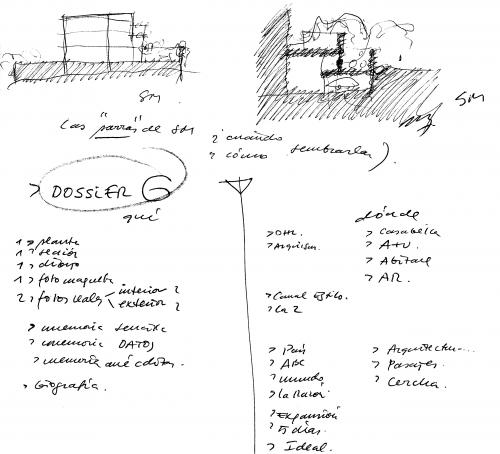 SM
SM
Las "parras" de SM
¿ cuándo
? cómo sembrarlas).
> DOSSIER G
qué
1 > planta
1 > sección
1 > dibujo
1 > foto maqueta
2 > fotos reales interior 2
exterior 2
> memoria
> memoria DATOS
> memoria anécdotas.
> Biografía.
dónde
> Arquitectura
> Casabella
> A+U
> Abitare
> AR.
> Canal Estilo.
> La 2
> País
> ABC
> mundo
> La Razón
> Expansión
> 5 días.
> Ideal.
> Arquitectu...
> Pasajes.
> Cercha.